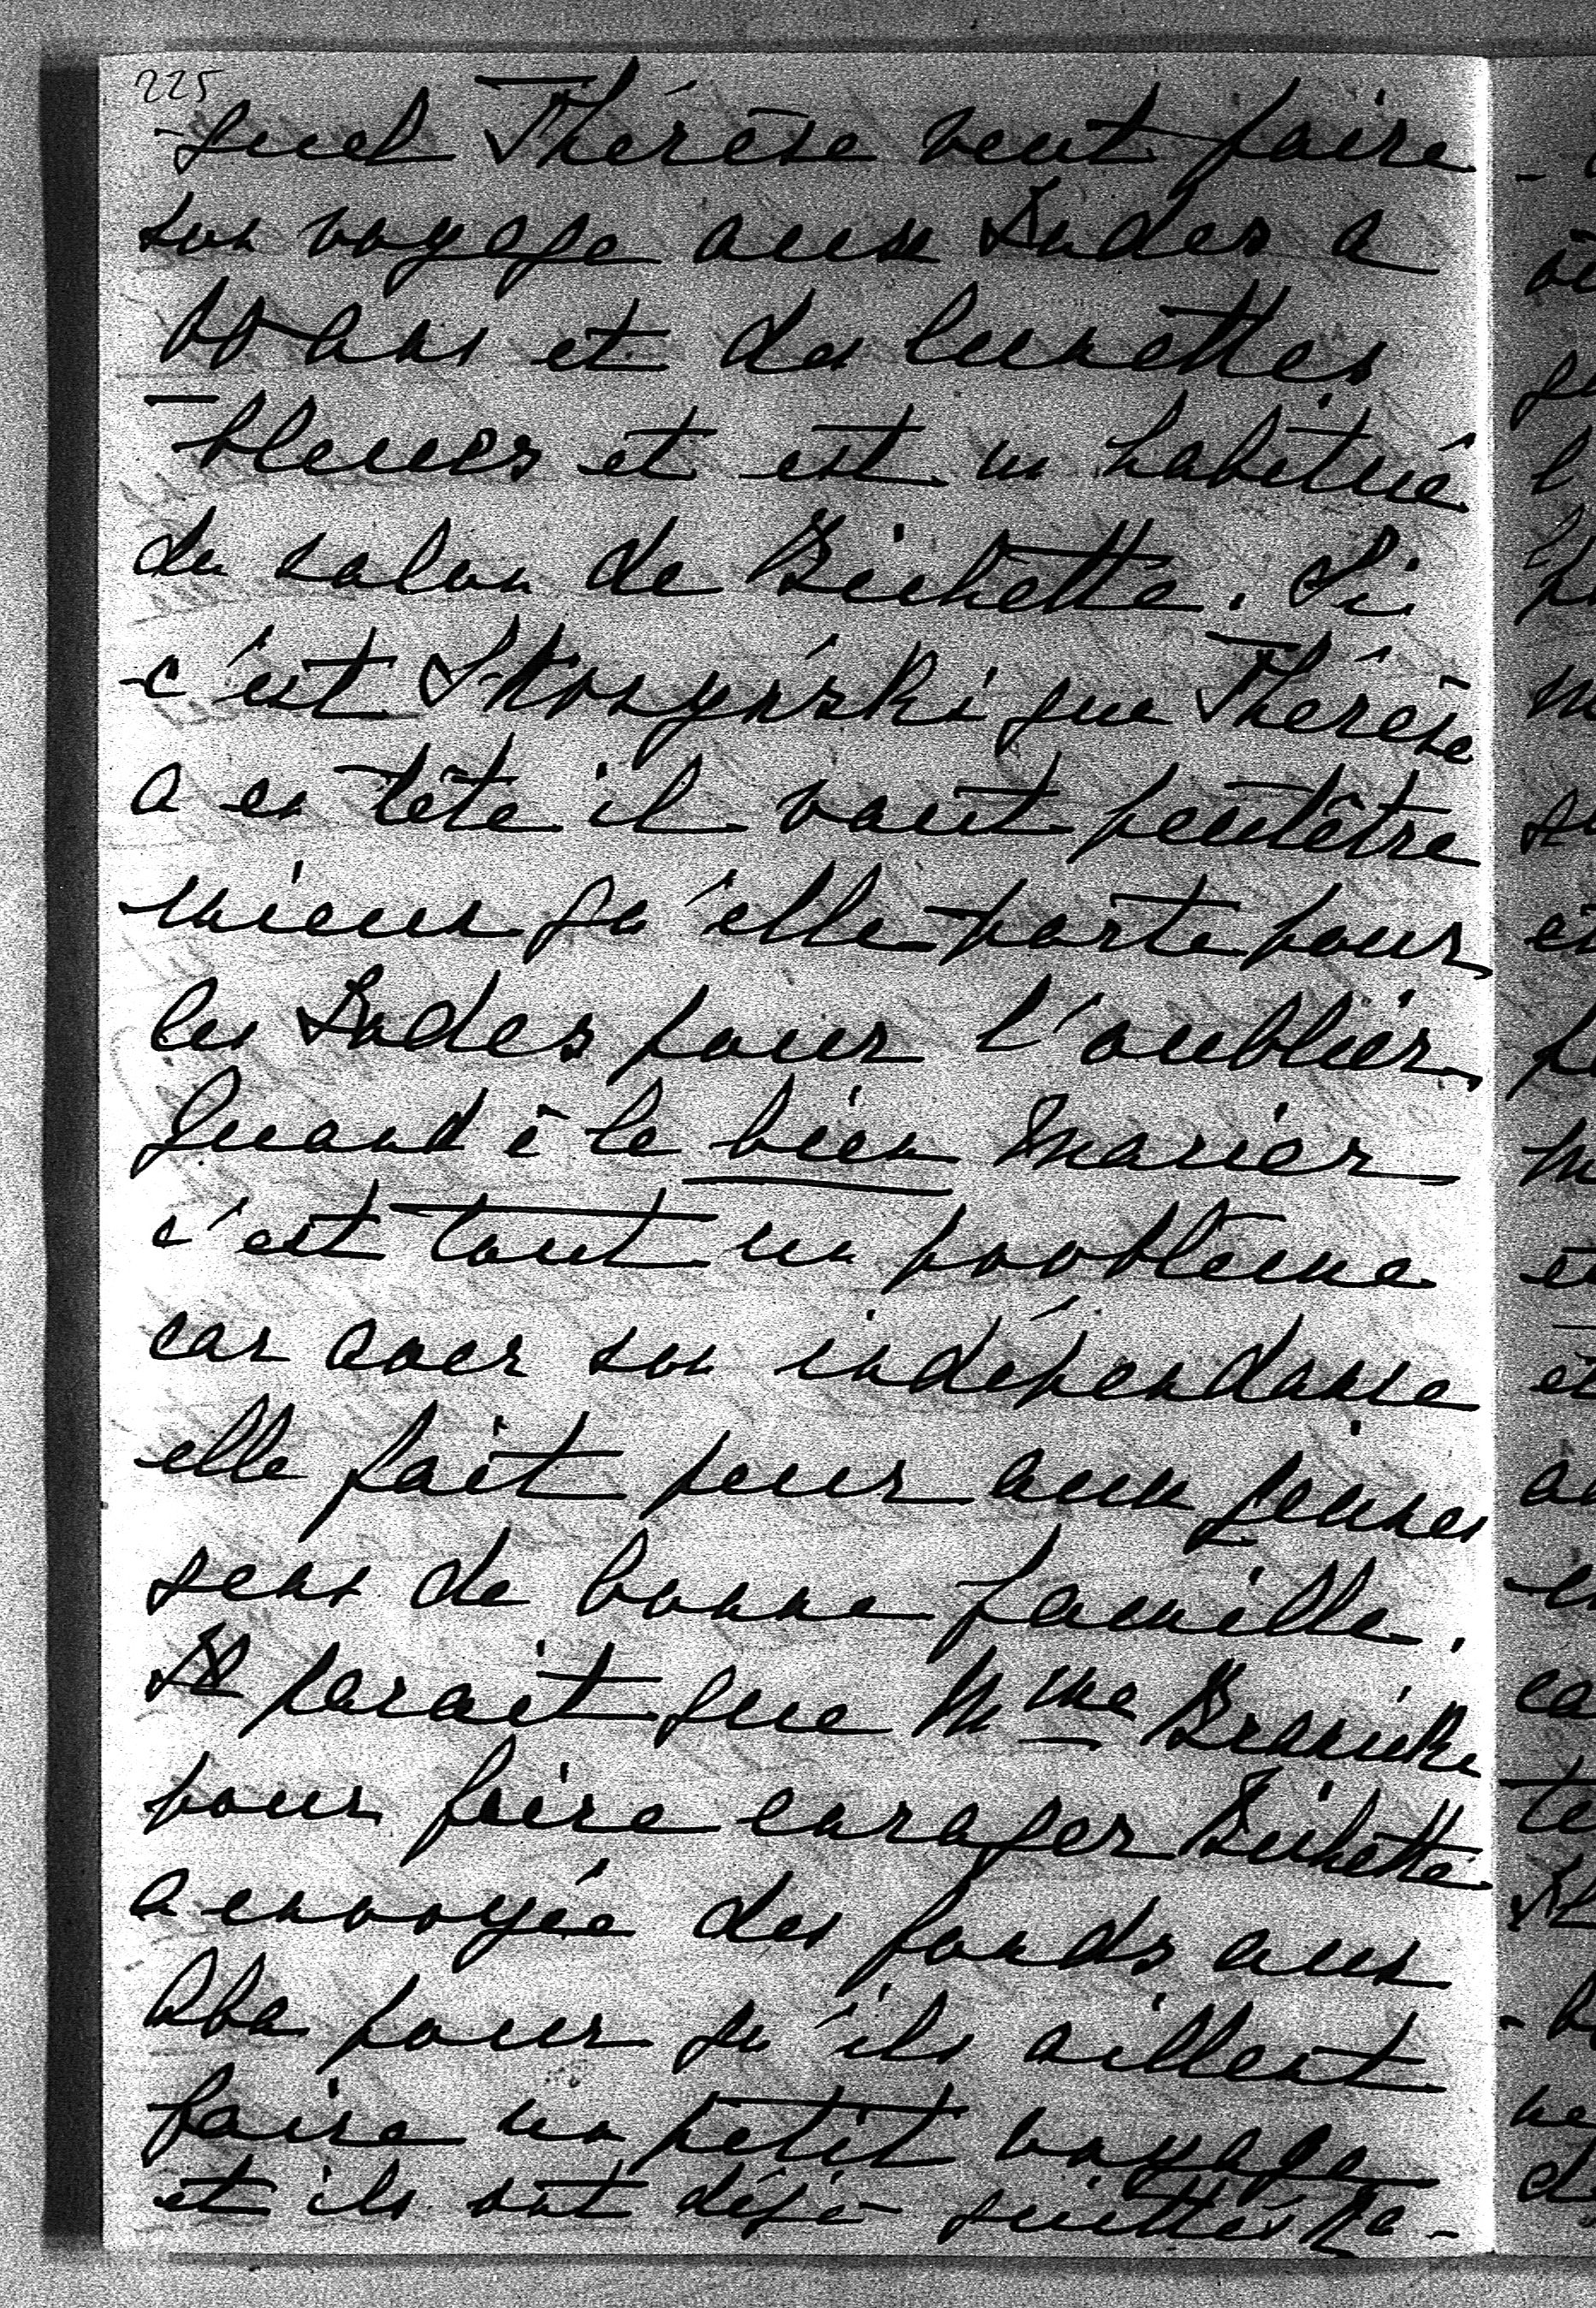 225
quel Thérèse veut faire
son voyage aux Indes a
ans et des lunettes
bleues et est un habitué
du salon de Bichette. Si
c'est que Thérèse
a en tête il vaut peutêtre
mieux qu'elle parte pour
les Indes pour l'oublier.
Quand à la bien marier
c'est tout un problème
car avec son indépendance
elle fait peur aux jeunes
gens de bonne famille.
Il parait que Mme Branicka
pour faire enrager Bichette
a envoyée des fonds aux
Aba pour qu'ils aillent
faire un petit voyage
et ils ont déjà quittés